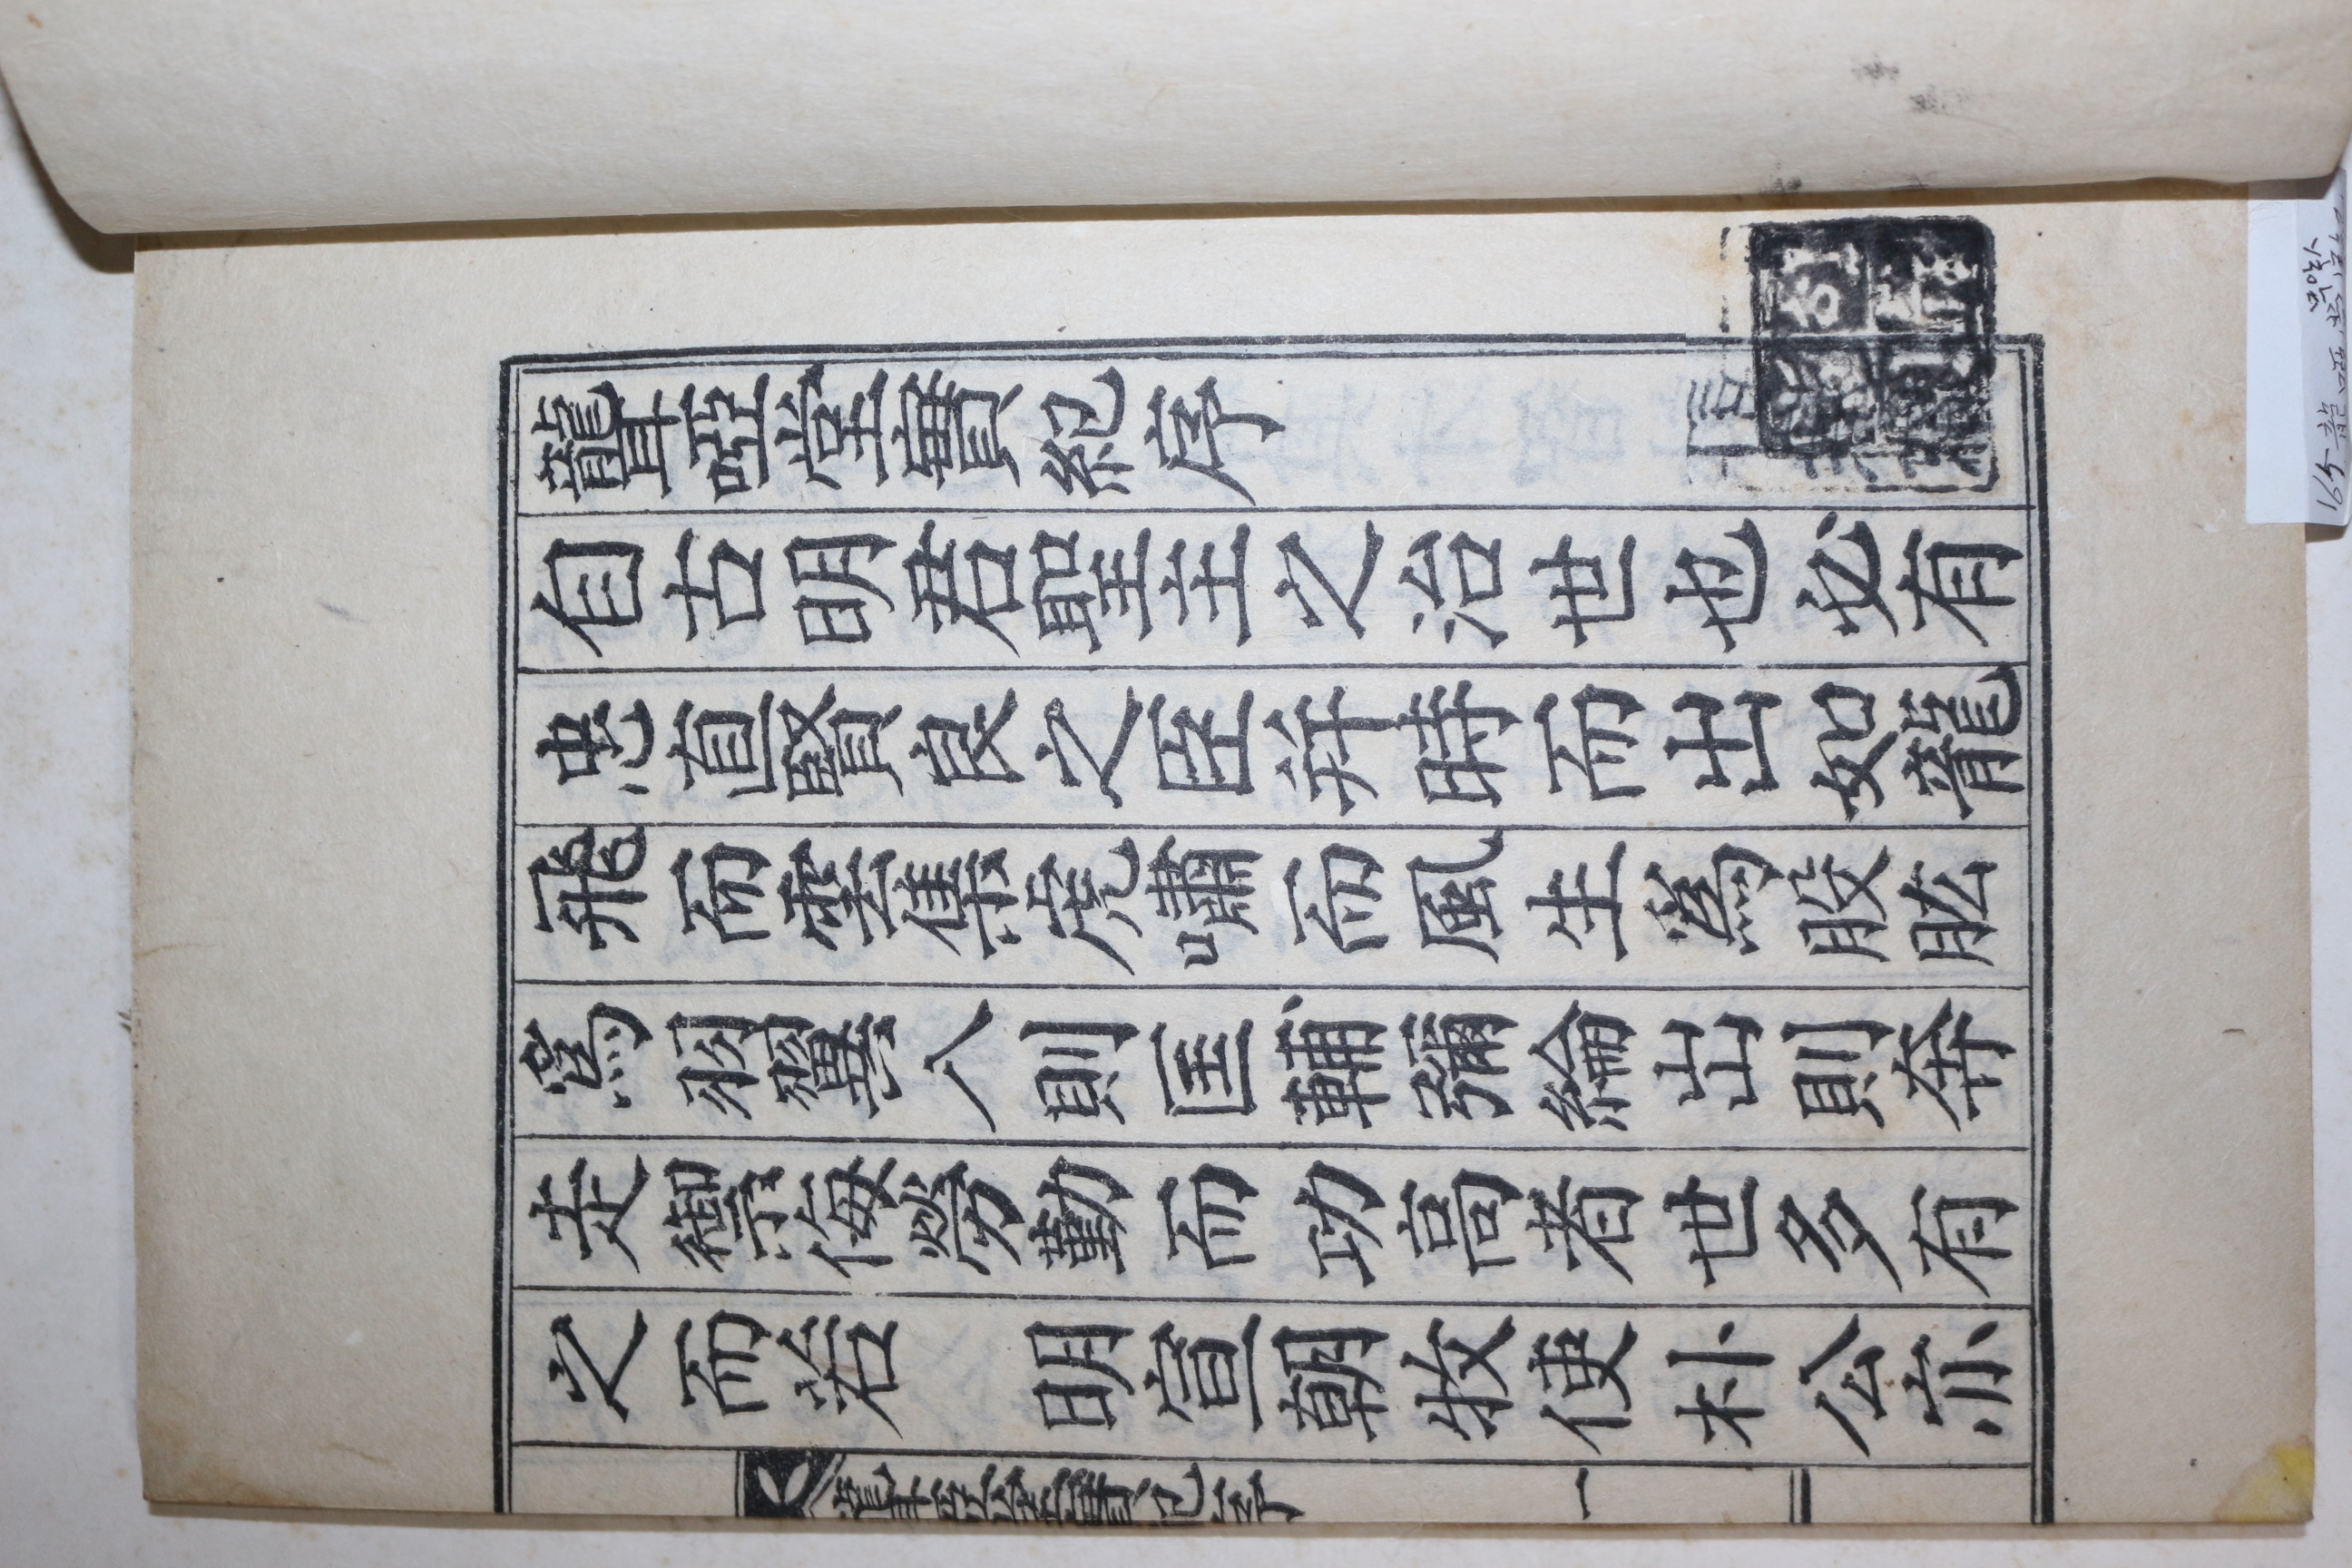 聾啞堂實紀序
自古明君聖主之治世也必有
忠直賢良之臣并時而出如龍
飛而雲集虎嘯而風生爲股肱
爲羽翼入則匡輔彌綸出則奔
走禦侮勞勤而功高者世多有
之而若　明宣朝牧使朴公亦
聾啞堂實紀序
一